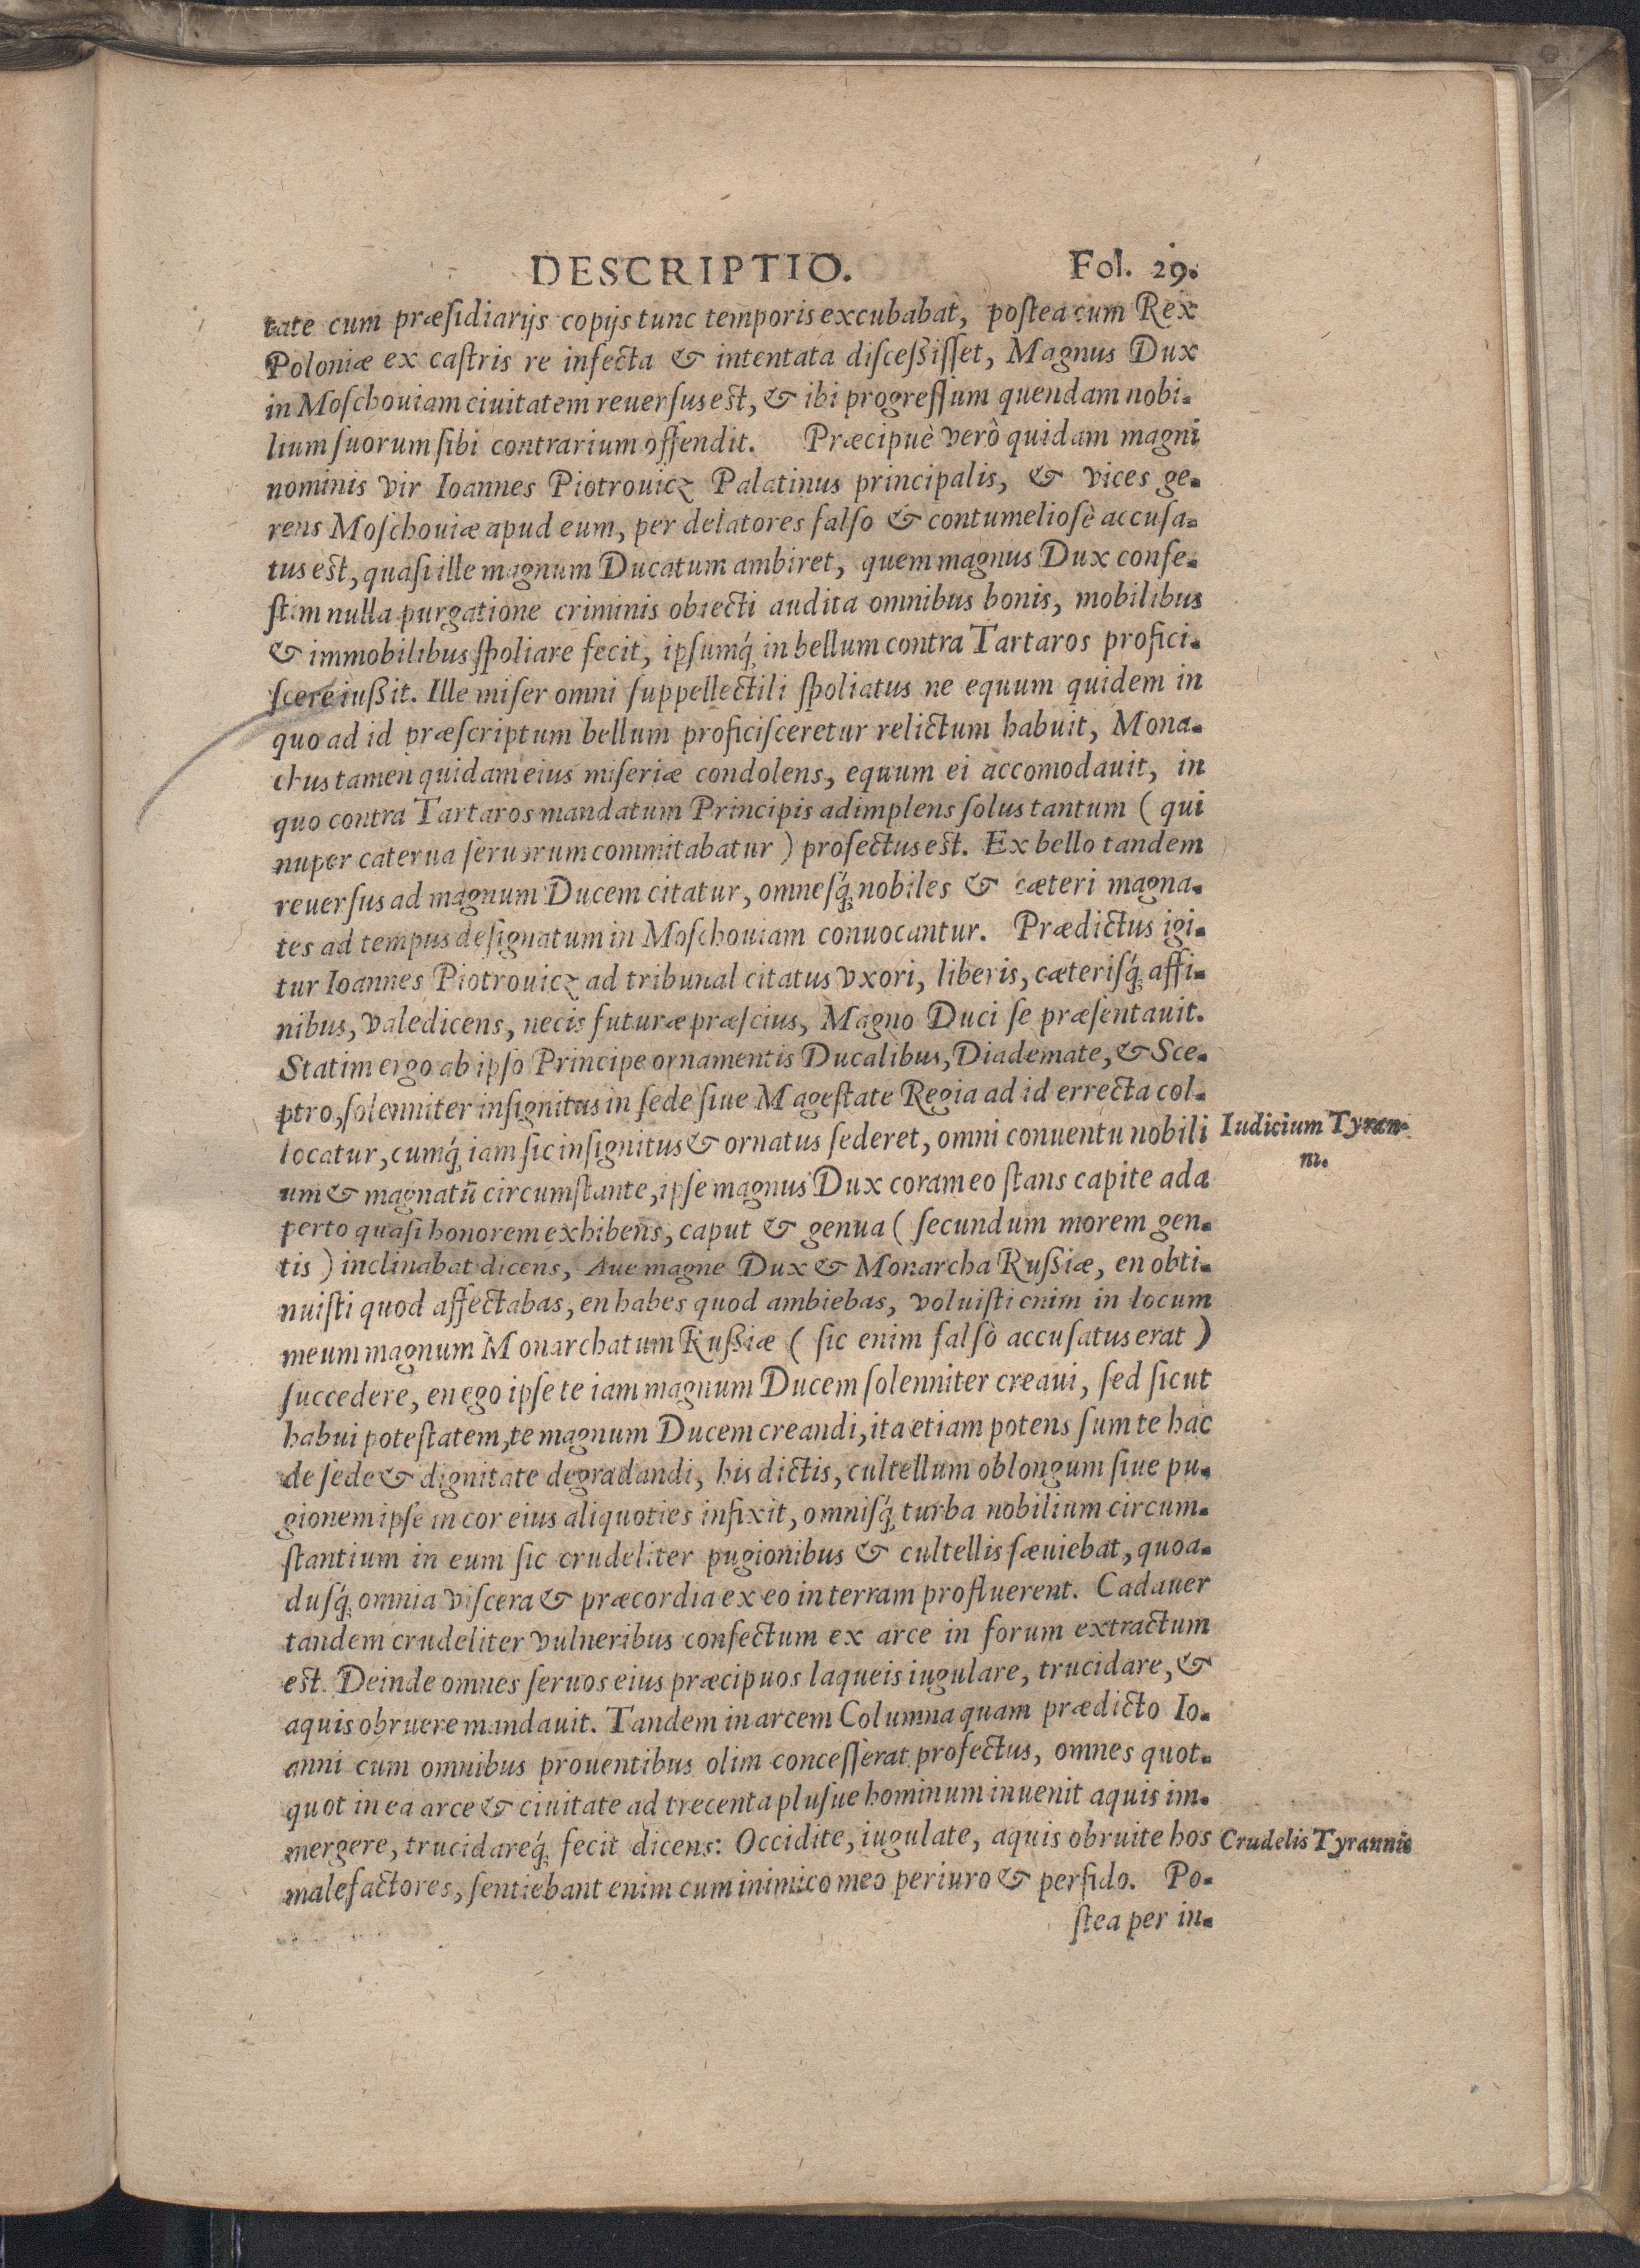 DESCRIPTIO. Fol. 29.
tate cum præſidiarijs copijs tunc temporis excubabat, poſtea cum Rex
Poloniæ ex caſtris re infecta & intentata diſceßiſſet, Magnus Dux
in Moſchouiam ciuitatem reuerſus eſt, & ibi progreſſum quendam nobi-
lium ſuorum ſibi contrarium offendit. Præcipuè verò quidam magni
nominis vir Ioannes Piotrouicz Palatinus principalis, & vices ge-
rens Moſchouiæ apud eum, per delatores falſo & contumelioſè accuſa-
tus eſt, quaſi ille magnum Ducatum ambiret, quem magnus Dux confe-
ſtim nulla purgatione criminis obiecti audita omnibus bonis, mobilibus
& immobilibus ſpoliare fecit, ipſumq́; in bellum contra Tartaros profici-
ſcere iußit. Ille miſer omni ſuppellectili ſpoliatus ne equum quidem in
quo ad id præſcriptum bellum proficiſceretur relictum habuit, Mona-
chus tamen quidam eius miſeriæ condolens, equum ei accomodauit, in
quo contra Tartaros mandatum Principis adimplens ſolus tantum ( qui
nuper caterua ſeruorum commitabatur ) profectus eſt. Ex bello tandem
reuerſus ad magnum Ducem citatur, omneſq́; nobiles & cæteri magna-
tes ad tempus deſignatum in Moſchouiam conuocantur. Prædictus igi-
tur Ioannes Piotrouicz ad tribunal citatus vxori, liberis, cæteriſq́; affi-
nibus, valedicens, necis futuræ præſcius, Magno Duci ſe præſentauit.
Statim ergo ab ipſo Principe ornamentis Ducalibus, Diademate, & Sce-
ptro, ſolenniter inſignitus in ſede ſiue Mageſtate Regia ad id errecta col-
locatur, cumq́; iam ſic inſignitus & ornatus ſederet, omni conuentu nobili
Iudicium Tyran-
ni.
um & magnatū circumſtante, ipſe magnus Dux coram eo ſtans capite ada
perto quaſi honorem exhibens, caput & genua ( ſecundum morem gen-
tis ) inclinabat dicens, Aue magne Dux & Monarcha Rußiæ, en obti-
nuiſti quod affectabas, en habes quod ambiebas, voluiſti enim in locum
meum magnum Monarchatum Rußiæ ( ſic enim falſò accuſatus erat )
ſuccedere, en ego ipſe te iam magnum Ducem ſolenniter creaui, ſed ſicut
habui poteſtatem, te magnum Ducem creandi, ita etiam potens ſum te hac
de ſede & dignitate degradandi, his dictis, cultellum oblongum ſiue pu-
gionem ipſe in cor eius aliquoties infixit, omniſq́; turba nobilium circum-
ſtantium in eum ſic crudeliter pugionibus & cultellis ſæuiebat, quoa-
duſq́; omnia viſcera & præcordia ex eo in terram profluerent. Cadauer
tandem crudeliter vulneribus confectum ex arce in forum extractum
eſt. Deinde omnes ſeruos eius præcipuos laqueis iugulare, trucidare, &
aquis obruere mandauit. Tandem in arcem Columna quam prædicto Io-
anni cum omnibus prouentibus olim conceſſerat profectus, omnes quot-
quot in ea arce & ciuitate ad trecenta pluſue hominum inuenit aquis im-
mergere, trucidareq́; fecit dicens: Occidite, iugulate, aquis obruite hos
Crudelis Tyrannis
malefactores, ſentiebant enim cum inimico meo periuro & perfido. Po-
ſtea per in-